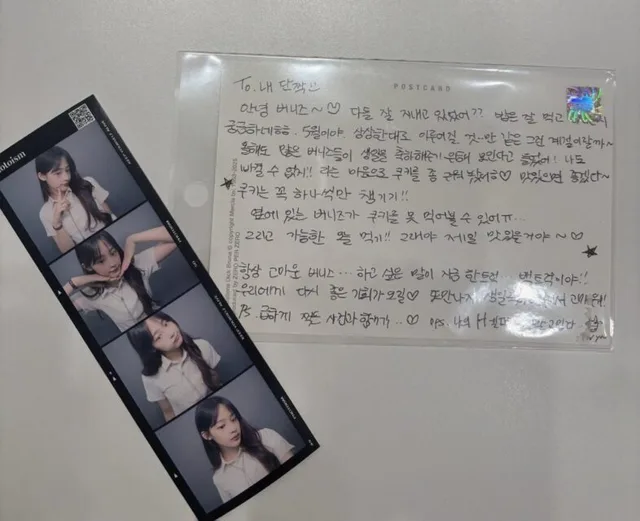 otoism
To. 내 단짝
POSTCARD
안녕 버니즈~♡ 다들 잘 지내고 있었어?? 밥은 잘 먹고
궁금하네ㅎㅎ. 5월이야. 상상한대로 이루어질 것만 같은 그런 계절이랄까~
올해도 많은 버니즈들이 생일을 축하해주기 위해 모인다고 들었어! 나도
빠질 수 없지!! 라는 마음으로 쿠키를 좀 구워봤어ㅎ♡ 맛있으면 좋겠다~
쿠키는 꼭 하나씩만 챙기기!!
옆에 있는 버니즈가 쿠키를 못 먹어볼 수 있어ㅠ...
그리고 가능한 빨리 먹기! 그래야 제일 맛있을거야~♡
항상 고마운 버니즈... 하고 싶은 말이 지금 한트럭... 백트럭이야!!
우리에게 다시 좋은 기회가 오길♡ 또만나자 고마워!
PS. 급하게 찍은 사진과 함께가..♡